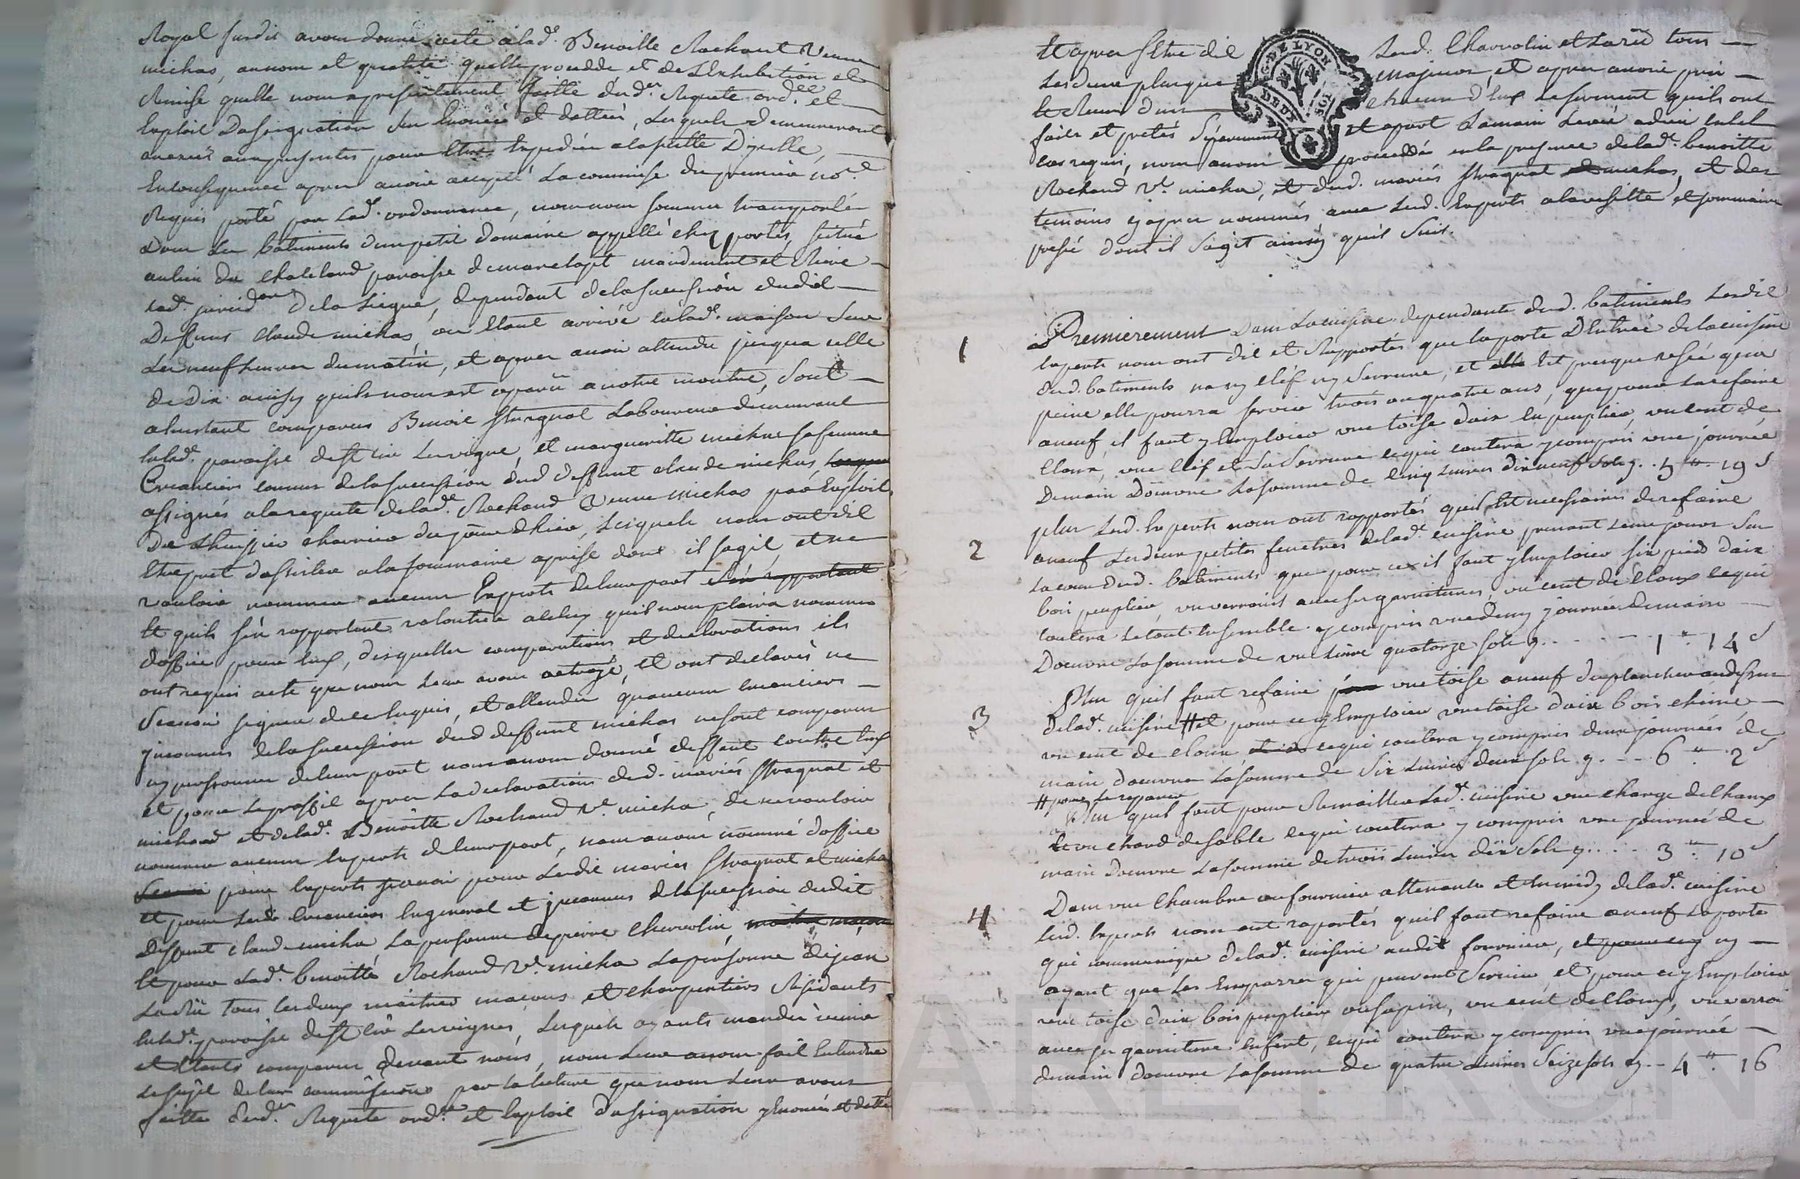 Royal susdit avons donné acte a lad.e Benoitte Rochand Veuve
michas, au nom et qualité quelle procedde et de l'Exhibition et
Remise quelle nous a presentement faitte dud. Requete ord.ce et
Exploit d'assignation Sus Enoncés et dattés, lesquels demeureront
annexés aux presentes pour Etre Expediés a la suitte d'icelle,
En consequence apres avoir accepté La commise du premier
Requis porté par lad. ordonnance, nous nous sommes transporté
Dans les batiments d'un petit domaine appellé chez portes, situé
au lieu de chateland paroisse de marclopt mandement et
lad. jurid.on De la Liegue, dependant de la succession dudit
Deffunt claude michas, ou Etant arrivé en lad. maison Sur
Les neuf heures du matin, et apres avoir attendu jusqua celle
de dix ainsy quils nous est aparû a notre montre, Sont
a l'instant comparus Benoit Stragnat Laboureur demeurant
en lad. paroisse de St Cir Les vignes, et margueritte michas sa femme
Creanciers connus de la succession dud. deffunt claude michas
assignés a la requete de lad.e Rochand Veuve michas par Exploit
De L'huissier charvin du jour d'hier, Lesquels nous ont dit
Etre pret d'assister a la sommaire aprise dont il sagit et ne
vouloir nommer aucuns Experts de leur part s'en rapportent
Et quils s'en rapportent volontier a celuy quil nous plaira nommer
d'office pour Eux, desquelles comparutions et declarations ils
ont requis acte que nous Leur avons octroyé, et ont declarés ne
Scavoir signer de ce Enquis, et attendu quaucuns creanciers
Inconnus de la succession dud. deffunt michas ne sont comparus
ny personnes de leur part nous avons donné deffaut contre Eux
et pour Le proffit apres La declaration desd. mariés Stragnat et
michas et de lad.e Benoitte Rochand V.e michas de ne vouloir
nommer aucuns Experts de leur part, nous avons nommé d'office
pour Experts scavoir pour Lesdit mariés Stragnat et michas
et pour Lesd. Creanciers En general et inconnus de la succession dudit
Deffunt claude michas, La personne de pierre Charvolin,
Et pour lad.e benoitte Rochand V.e michas La personne de jean
Lardü tous les deux maitres macons et charpentiers Residants
en lad. paroisse de St Cir Les vignes, Lesquels ayants mandés venir
et Etants comparus devant nous, nous Leur avons fait Entendre
Le sujet de leur commission par la lecture que nous Leur avons
faitte dud. Requete ord.ce et Exploit d'assignation y Enoncés et dattés
Et apres S'Etre dit Lesd. Charvolin et Lardü tous
Les deux plus que majeurs, et apres avoir pris
et Recu d'eux chacun d'Eux Le serment quils ont
faits et pretés Separement et apart Lamain Levée a dieu En tel
cas requis, nous avons procedde en la presence de lad.e benoitte
Rochand V.e michas, et desd. mariés Stragnat et michas, et des
temoins cy apres nommés avec Lesd. Experts a la visitte et sommaire
prisée dont il Sagit ainsy quil Suit.
1
Premierement Dans La cuisine dependante desd. batiments Lesdit
Experts nous ont dit et Rapportés que la porte D'Entrée de la cuisine
desd. batiments na ny Clef ny Serrure, et elle Est presque usée qu'a
peine elle pourra servir trois ou quatre ans, que pour La refaire
a neuf, il faut y Emploier une toise d'aix En peuplier, un cent de
Cloux, une Clef et Sa Serrure ce qui coutera y compris une journée
De main D'oeuvre La somme de Cinq Livres dix neuf Sols cy .. 5 ₶ 19 s
2
plus Lesd. Experts nous ont rapportés quil Est necessaires de refaire
a neuf Les deux petites fenetres de lad. cuisine prenant Leurs jours Sur
La cour desd. batiments que pour ce il faut y Emploier six pied d'aix
bois peuplier, un verrouil avec ses garnitures, un cent de Cloux ce qui
coutera Le tout Ensemble y compris une demy journée de main
D'oeuvre La somme de une Livre quatorze sols cy ..... 1 ₶ 14 s
3
Plus quil faut refaire une toise a neuf du plancher au dessus
de lad. cuisine # et pour ce y Emploier une toise d'aix bois chene
un cent de cloux ce qui coutera y compris deux journées de
main d'oeuvre La somme de Six Livres deux sols cy .... 6 ₶ 2 s
# pour Le reparer
Plus quil faut pour Remailler Lad. cuisine une charge de chaux
et un chard de sable ce qui coutera y compris une journée de
main d'oeuvre La somme de trois Livres dix Sols cy .... 3 ₶ 10 s
4
Dans une chambre ou fourniere attenante et au midy de lad. cuisine
Lesd. Experts nous ont raportés quil faut refaire a neuf La porte
qui communique de lad. cuisine audit fournier, et pour ce y ny
ayant que Les Emparres qui peuvent Servir et pour ce y Emploier
une toise d'aix bois peuplier ou sapin, un cent de Cloux, un verrouil
avec ses garniture En fert, ce qui coutera y compris une journée
de main d'oeuvre La somme de quatre Livres Seize sols cy .. 4 ₶ 16
G. DE LYON
DEUX SOLS
HAREYRON